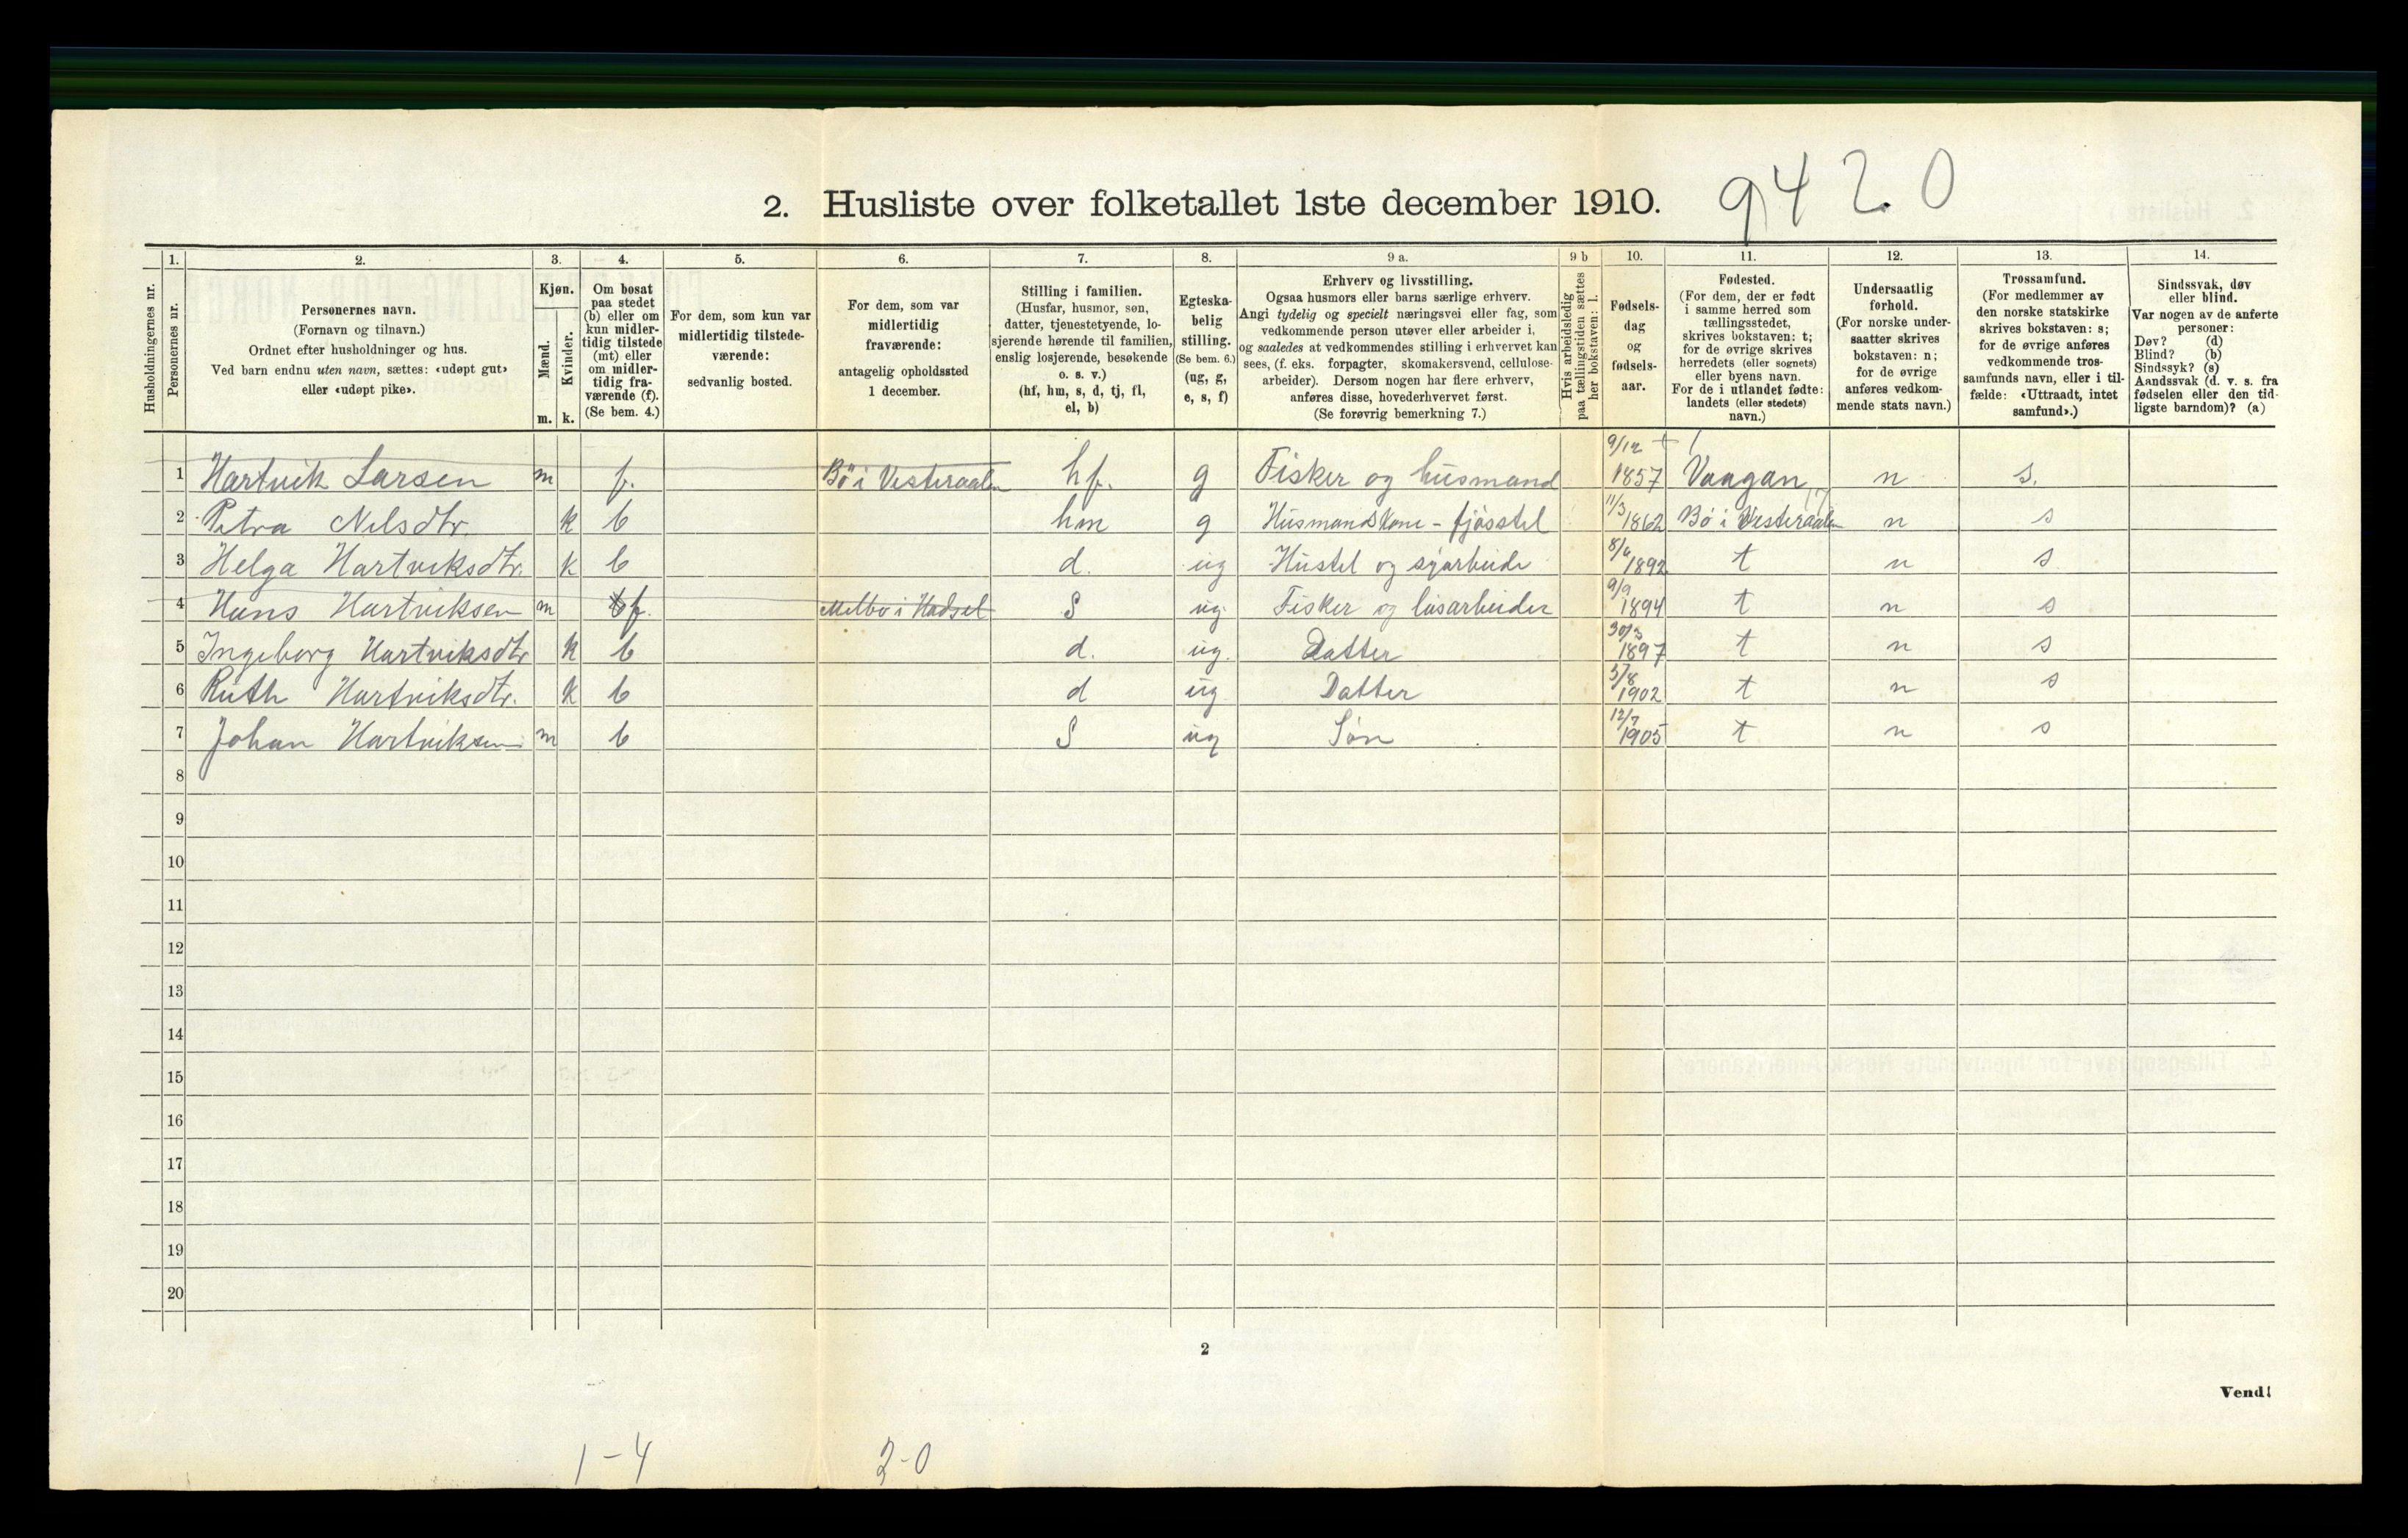 2. Husliste over folketallet 1ste december 1910. 9420
Husholdningernes nr.
1. Personernes nr.
2. Personernes navn.
(Fornavn og tilnavn.)
Ordnet efter husholdninger og hus.
Ved barn endnu uten navn, sættes: «udøpt gut»
eller «udøpt pike».
3. Kjøn.
Mænd. m.
Kvinder. k.
4. Om bosat
paa stedet
(b) eller om
kun midler-
tidig tilstede
(mt) eller
om midler-
tidig fra-
værende (f).
(Se bem. 4.)
5. For dem, som kun var
midlertidig tilstede-
værende:
sedvanlig bosted.
6. For dem, som var
midlertidig
fraværende:
antagelig opholdssted
1 december.
7. Stilling i familien.
(Husfar, husmor, søn,
datter, tjenestetyende, lo-
sjerende hørende til familien,
enslig losjerende, besøkende
o. s. v.)
(hf, hm, s, d, tj, fl,
el, b)
8. Egteska-
belig
stilling.
(Se bem. 6.)
(ug, g,
e, s, f)
9 a. Erhverv og livsstilling.
Ogsaa husmors eller barns særlige erhverv.
Angi tydelig og specielt næringsvei eller fag, som
vedkommende person utøver eller arbeider i,
og saaledes at vedkommendes stilling i erhvervet kan
sees, (f. eks. forpagter, skomakersvend, cellulose-
arbeider). Dersom nogen har flere erhverv,
anføres disse, hovederhvervet først.
(Se forøvrig bemerkning 7.)
9 b Hvis arbeidsledig
paa tællingstiden sættes
her bokstaven: l.
10. Fødsels-
dag
og
fødsels-
aar.
11. Fødested.
(For dem, der er født
i samme herred som
tællingsstedet,
skrives bokstaven: t;
for de øvrige skrives
herredets (eller sognets)
eller byens navn.
For de i utlandet fødte:
landets (eller stedets)
navn.)
12. Undersaatlig
forhold.
(For norske under-
saatter skrives
bokstaven: n;
for de øvrige
anføres vedkom-
mende stats navn.)
13. Trossamfund.
(For medlemmer av
den norske statskirke
skrives bokstaven: s;
for de øvrige anføres
vedkommende tros-
samfunds navn, eller i til-
fælde: «Uttraadt, intet
samfund».)
14. Sindssvak, døv
eller blind.
Var nogen av de anførte
personer:
Døv? (d)
Blind? (b)
Sindssyk? (s)
Aandssvak (d. v. s. fra
fødselen eller den tid-
ligste barndom)? (a)
1 Hartvik Larsen m f. Bö i Vesteraalen hf. g Fisker og husmand 9/12 1857 Vaagan n s.
2 Petra Nilsdtr. k b hm g Husmandskone - fjösstel 11/3 1862 Bö i Vesteraalen n s
3 Helga Hartviksdtr. k b d. ug Hustel og syarbeide 8/4 1892 t n s
4 Hans Hartviksen m f. Melbo i Hadsel S ug Fisker og lösarbeider 9/9 1894 t n s
5 Ingeborg Hartviksdtr k b d. ug. Datter 30/3 1897 t n s
6 Ruth Hartviksdtr. k b d ug Datter 1902 t n s
7 Johan Hartviksen m b S ug Sön 12/7 1905 t n s
8
9
10
11
12
13
14
15
16
17
18
19
20
2
Vend!
1-4 2-0